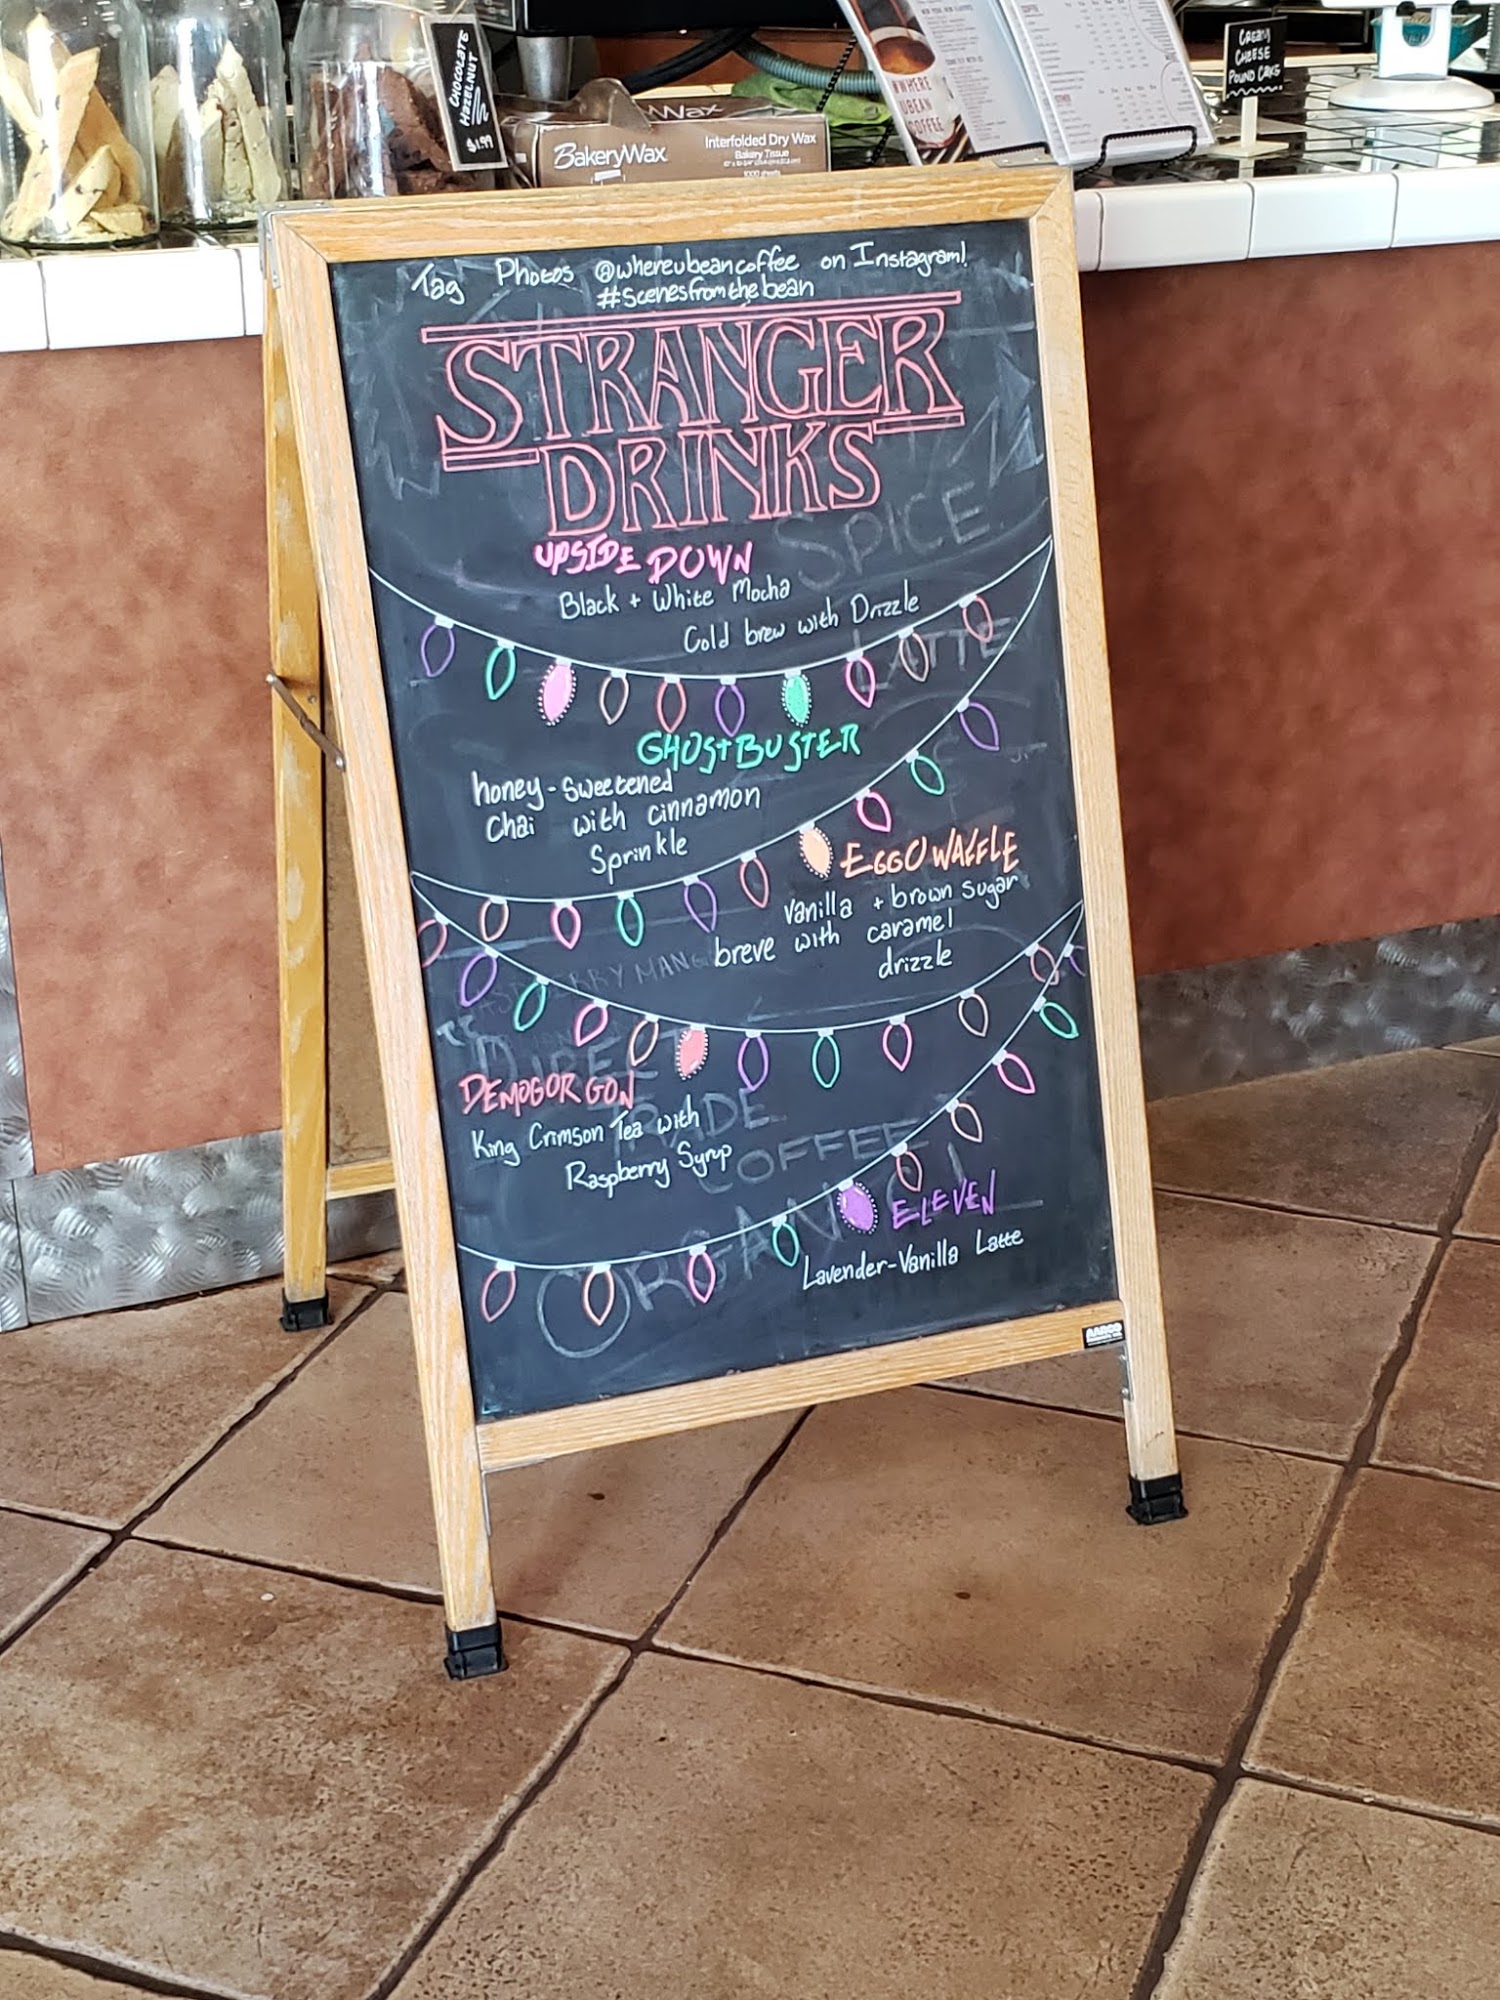 CHOCOLATE
HAZELNUT
$1.99
BakeryWax
Interfolded Dry Wax
Bakery Tissue
#WHERE
UBEAN
COFFEE
CREAM
CHEESE
POUND CAKE
Tag Photos @whereubeancoffee on Instagram!
#scenesfromthebean
STRANGER
DRINKS
UPSIDE DOWN
Black + White Mocha
Cold brew with Drizzle
SPICE
LATTE
GHOSTBUSTER
honey-sweetened
Chai with cinnamon
Sprinkle
EGGO WAFFLE
Vanilla + brown sugar
breve with caramel
drizzle
DIRECT
TRADE
COFFEE
ORGANIC
DEMOGORGON
King Crimson Tea with
Raspberry Syrup
ELEVEN
Lavender-Vanilla Latte
AARCO